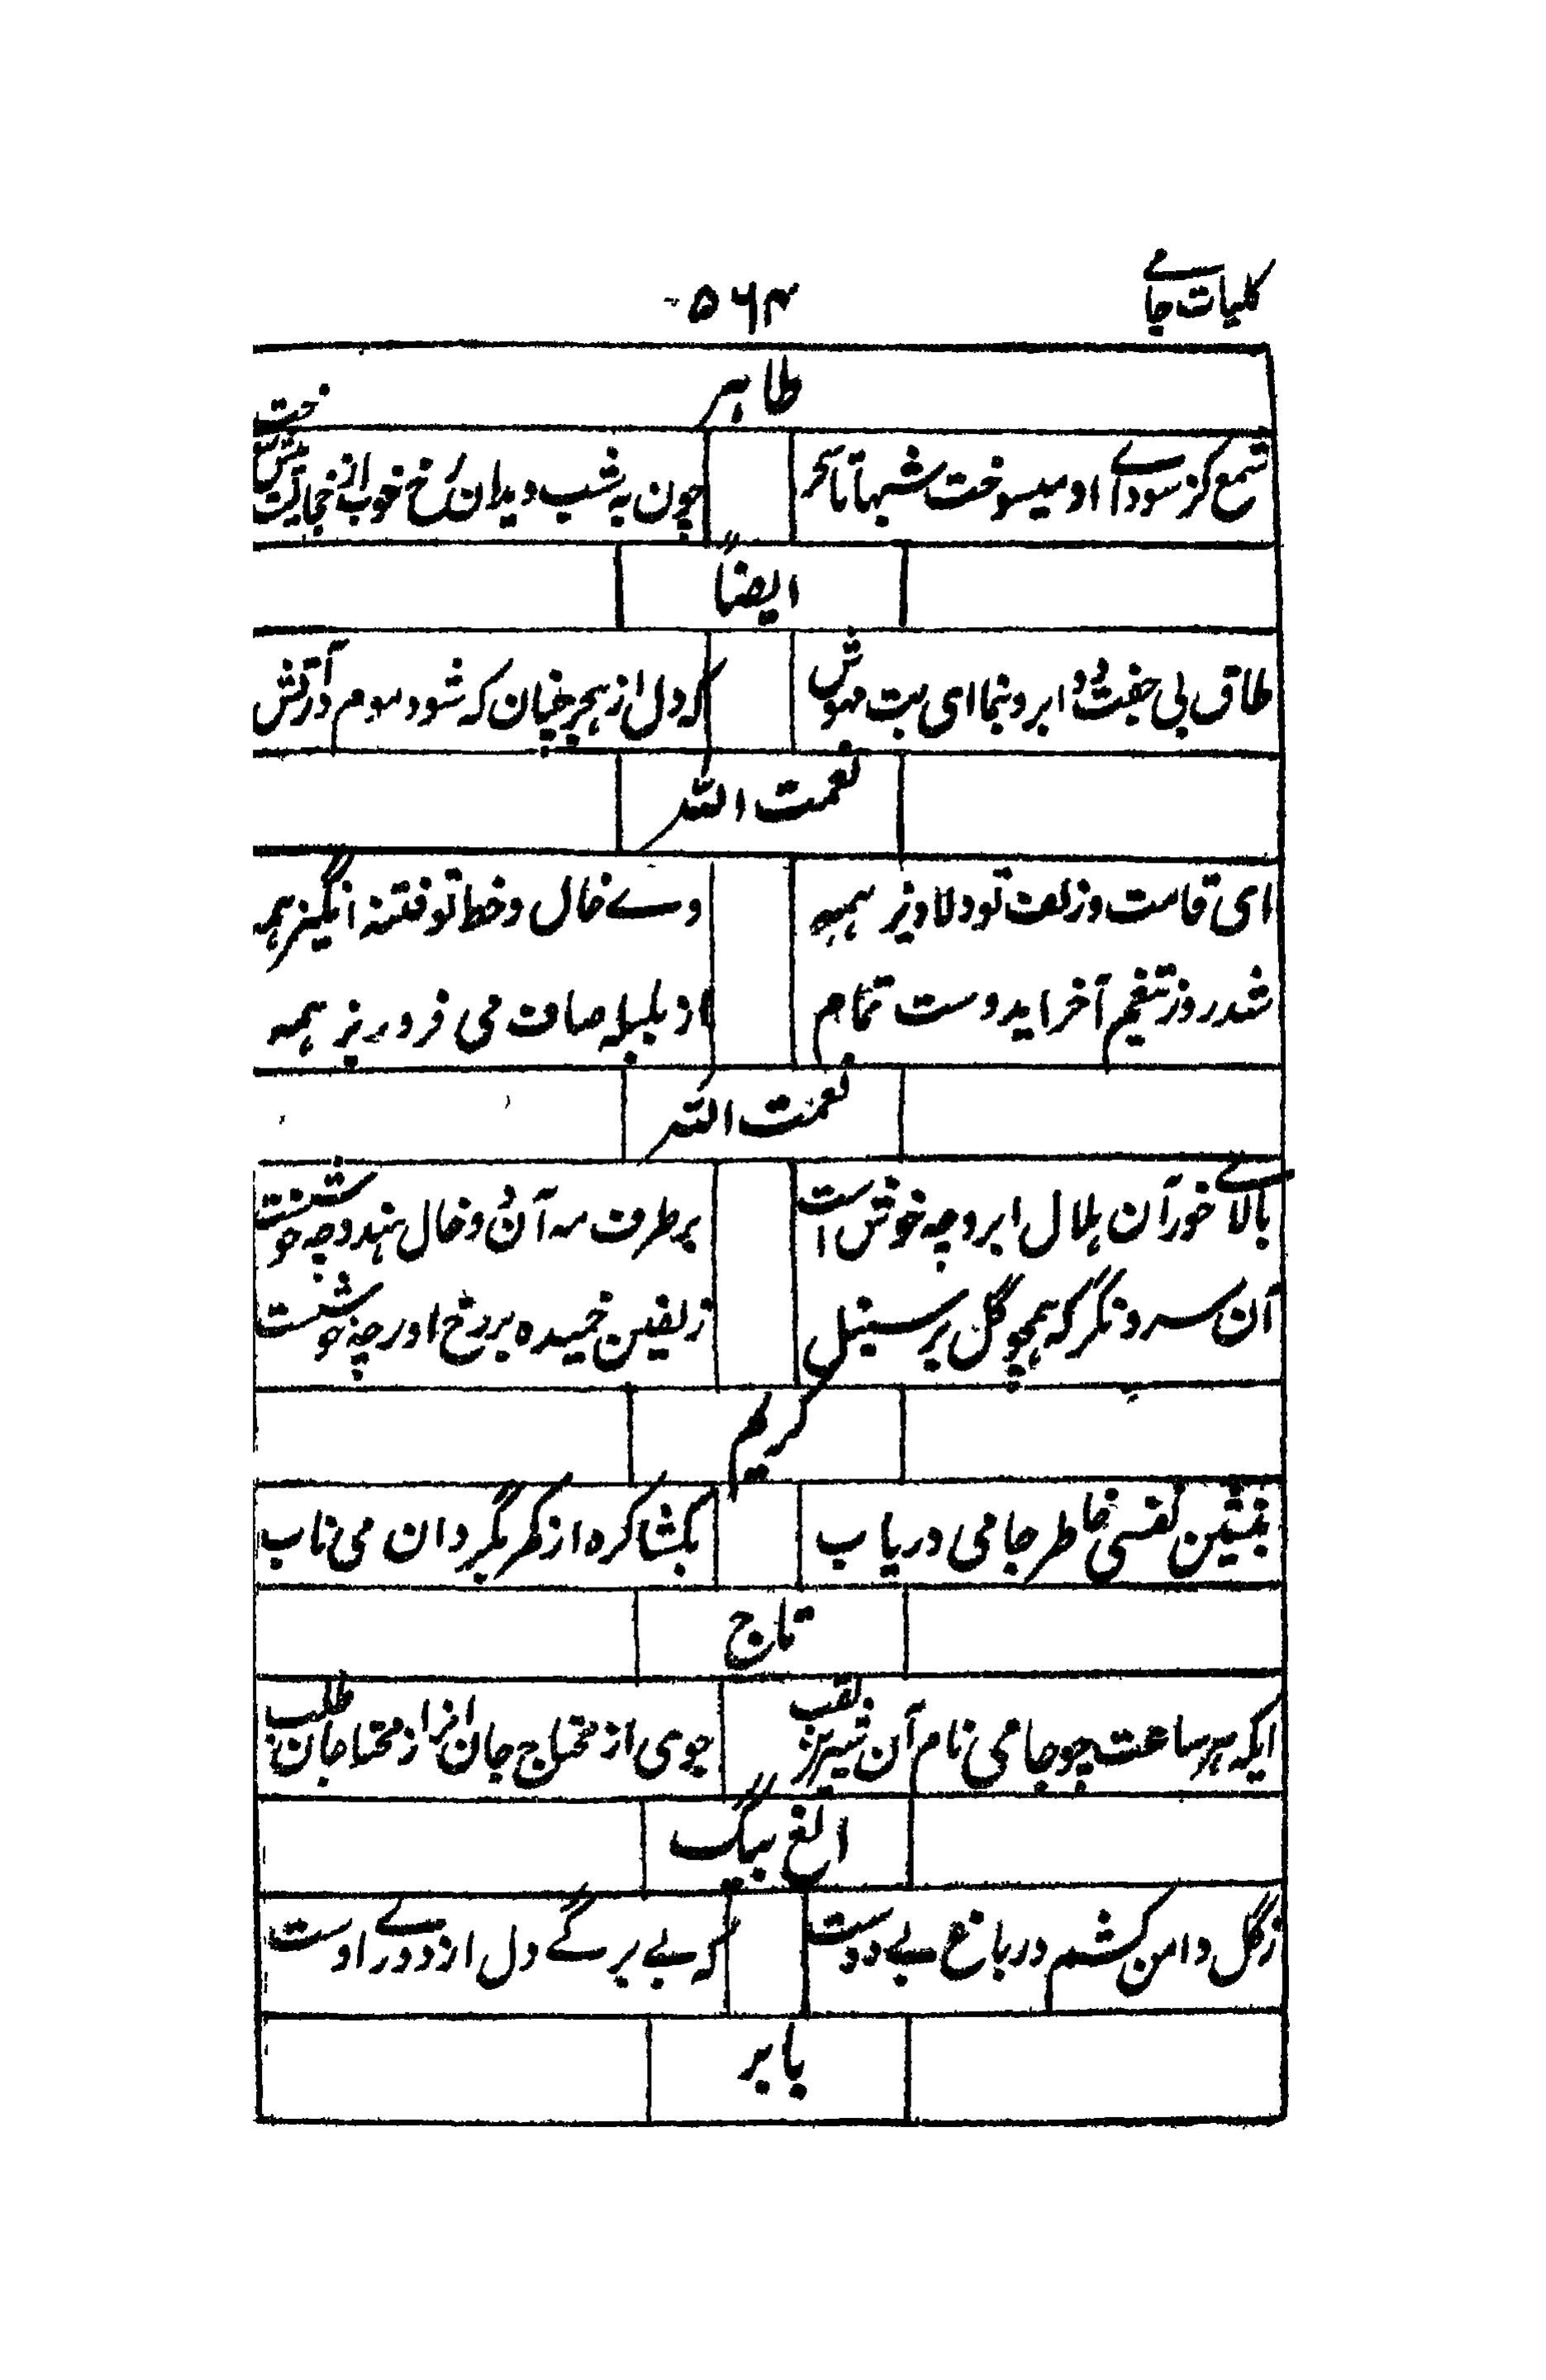 کلیات جامے
۵۶۴
طاہر
شمع کز سوداے او میسوخت شبہا تا سحر
چون بہ شب دید ان رخ خوب از خجالت بیش سوخت
ایضاً
طاق بی جفت دو ابرو بنما ای بت مہوش
کہ دل از ہجر چنان کہ شود موم در آتش
نعمت اللہ
ای قامت و زلف تو دلاویز ہمہ
وے خال و خط تو فتنہ انگیز ہمہ
شد روز تنعم آخر ایدوست تمام
از بلبلہ صاف می فرو ریز ہمہ
نعمت اللہ
بالاے خور آن ہلال ابرو چہ خوش است
بر طرف مہ آن دو خال ہندو چہ خوشست
آن سرو نگر کہ ہمچو گل بر سنبل
زلفین خمیدہ بر رخ اور چہ خوشست
کریم
بنشین نفسی خاطر جامی دریاب
بکشا کرہ از کمر بگردان می ناب
تاج
ایکہ ہر ساعت چو جامی نام آن شیرین لقب
جوی از محتاج جان انرا ز محتاجان طلب
الغ بیگ
ز گل دامن کشم در باغ بے دوست
کہ بے برگے دل از دورے اوست
بابر